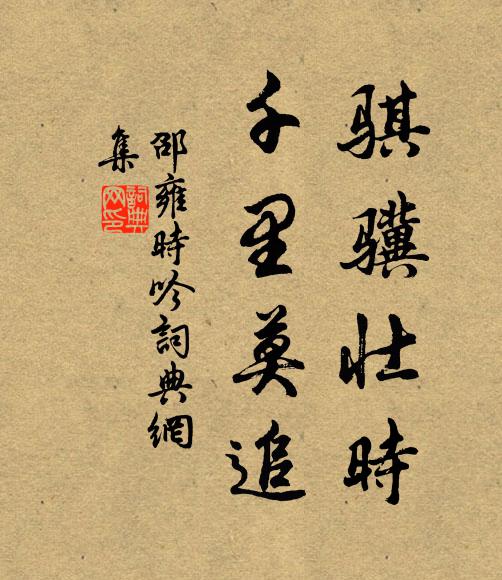 骐骥壮時
千里莫追
邵雍時吟詞典網
集
詞典网印